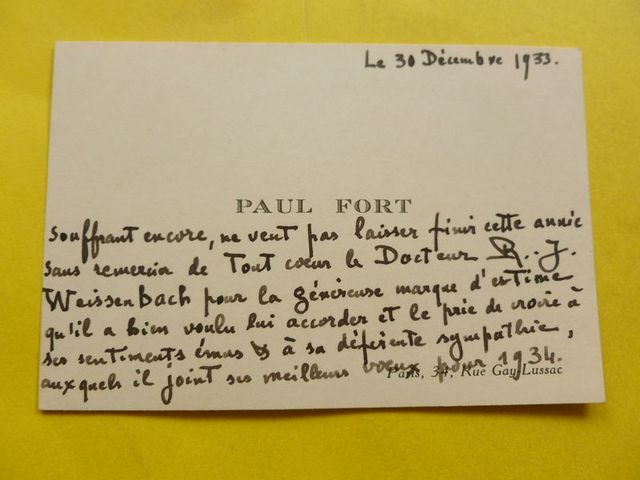 Le 30 Décembre 1933.
PAUL FORT
Souffrant encore, ne veut pas laisser finir cette année
sans remercier de Tout cœur le Docteur R.. J.
Weissenbach pour la généreuse marque d'estime
qu'il a bien voulu lui accorder et le prie de croire à
ses sentiments émus & à sa déférente sympathie,
auxquels il joint ses meilleurs voeux pour 1934.
Paris, 34, Rue Gay-Lussac